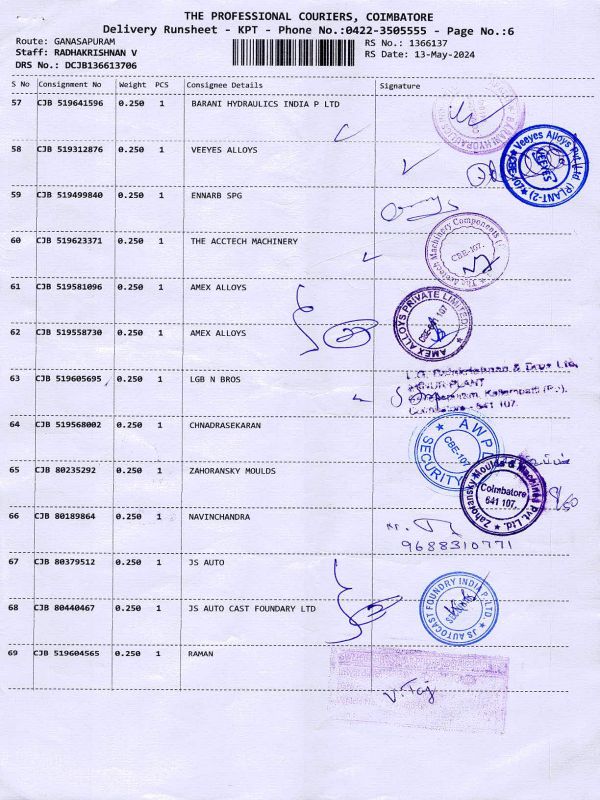 THE PROFESSIONAL COURIERS, COIMBATORE
Delivery Runsheet - KPT - Phone No.:0422-3505555 - Page No.:6
Route: GANASAPURAM
RS No.: 1366137
Staff: RADHAKRISHNAN V
RS Date: 13-May-2024
DRS No.: DCJB136613706
S No Consignment No Weight PCS Consignee Details Signature
57 CJB 519641596 0.250 1 BARANI HYDRAULICS INDIA P LTD
58 CJB 519312876 0.250 1 VEEYES ALLOYS
Veeyes Alloys Pvt Ltd (PLANT-2)
VEEYES
59 CJB 519499840 0.250 1 ENNARB SPG
60 CJB 519623371 0.250 1 THE ACCTECH MACHINERY
Machinery Components
CBE-107.
61 CJB 519581096 0.250 1 AMEX ALLOYS
AMEX ALLOYS PRIVATE LIMITED
62 CJB 519558730 0.250 1 AMEX ALLOYS
63 CJB 519605695 0.250 1 LGB N BROS
PLANT
Coimbatore - 641 107.
64 CJB 519568002 0.250 1 CHNADRASEKARAN
AWP
CBE-107
SECURITY
65 CJB 80235292 0.250 1 ZAHORANSKY MOULDS
Zahoransky Moulds & Machines Pvt. Ltd.
Coimbatore
641 107.
66 CJB 80189864 0.250 1 NAVINCHANDRA
9688310771
67 CJB 80379512 0.250 1 JS AUTO
68 CJB 80440467 0.250 1 JS AUTO CAST FOUNDARY LTD
JS AUTOCAST FOUNDRY INDIA P LTD
69 CJB 519604565 0.250 1 RAMAN
V. Taj